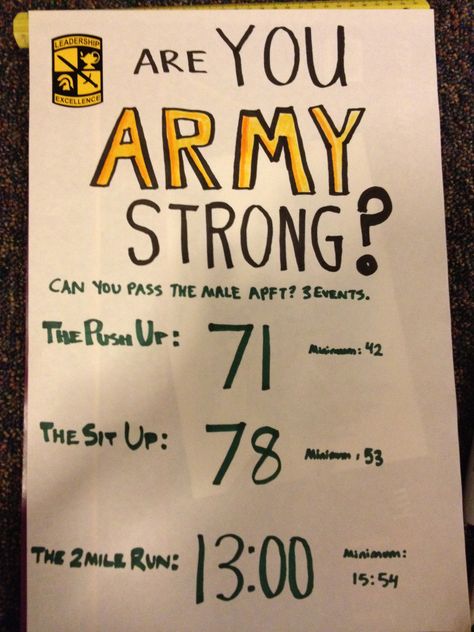 LEADERSHIP
EXCELLENCE
ARE YOU
ARMY
STRONG?
CAN YOU PASS THE MALE APFT? 3 EVENTS.
THE PUSH UP: 71 Minimum: 42
THE SIT UP: 78 Minimum: 53
THE 2 MILE RUN: 13:00 Minimum:
15:54